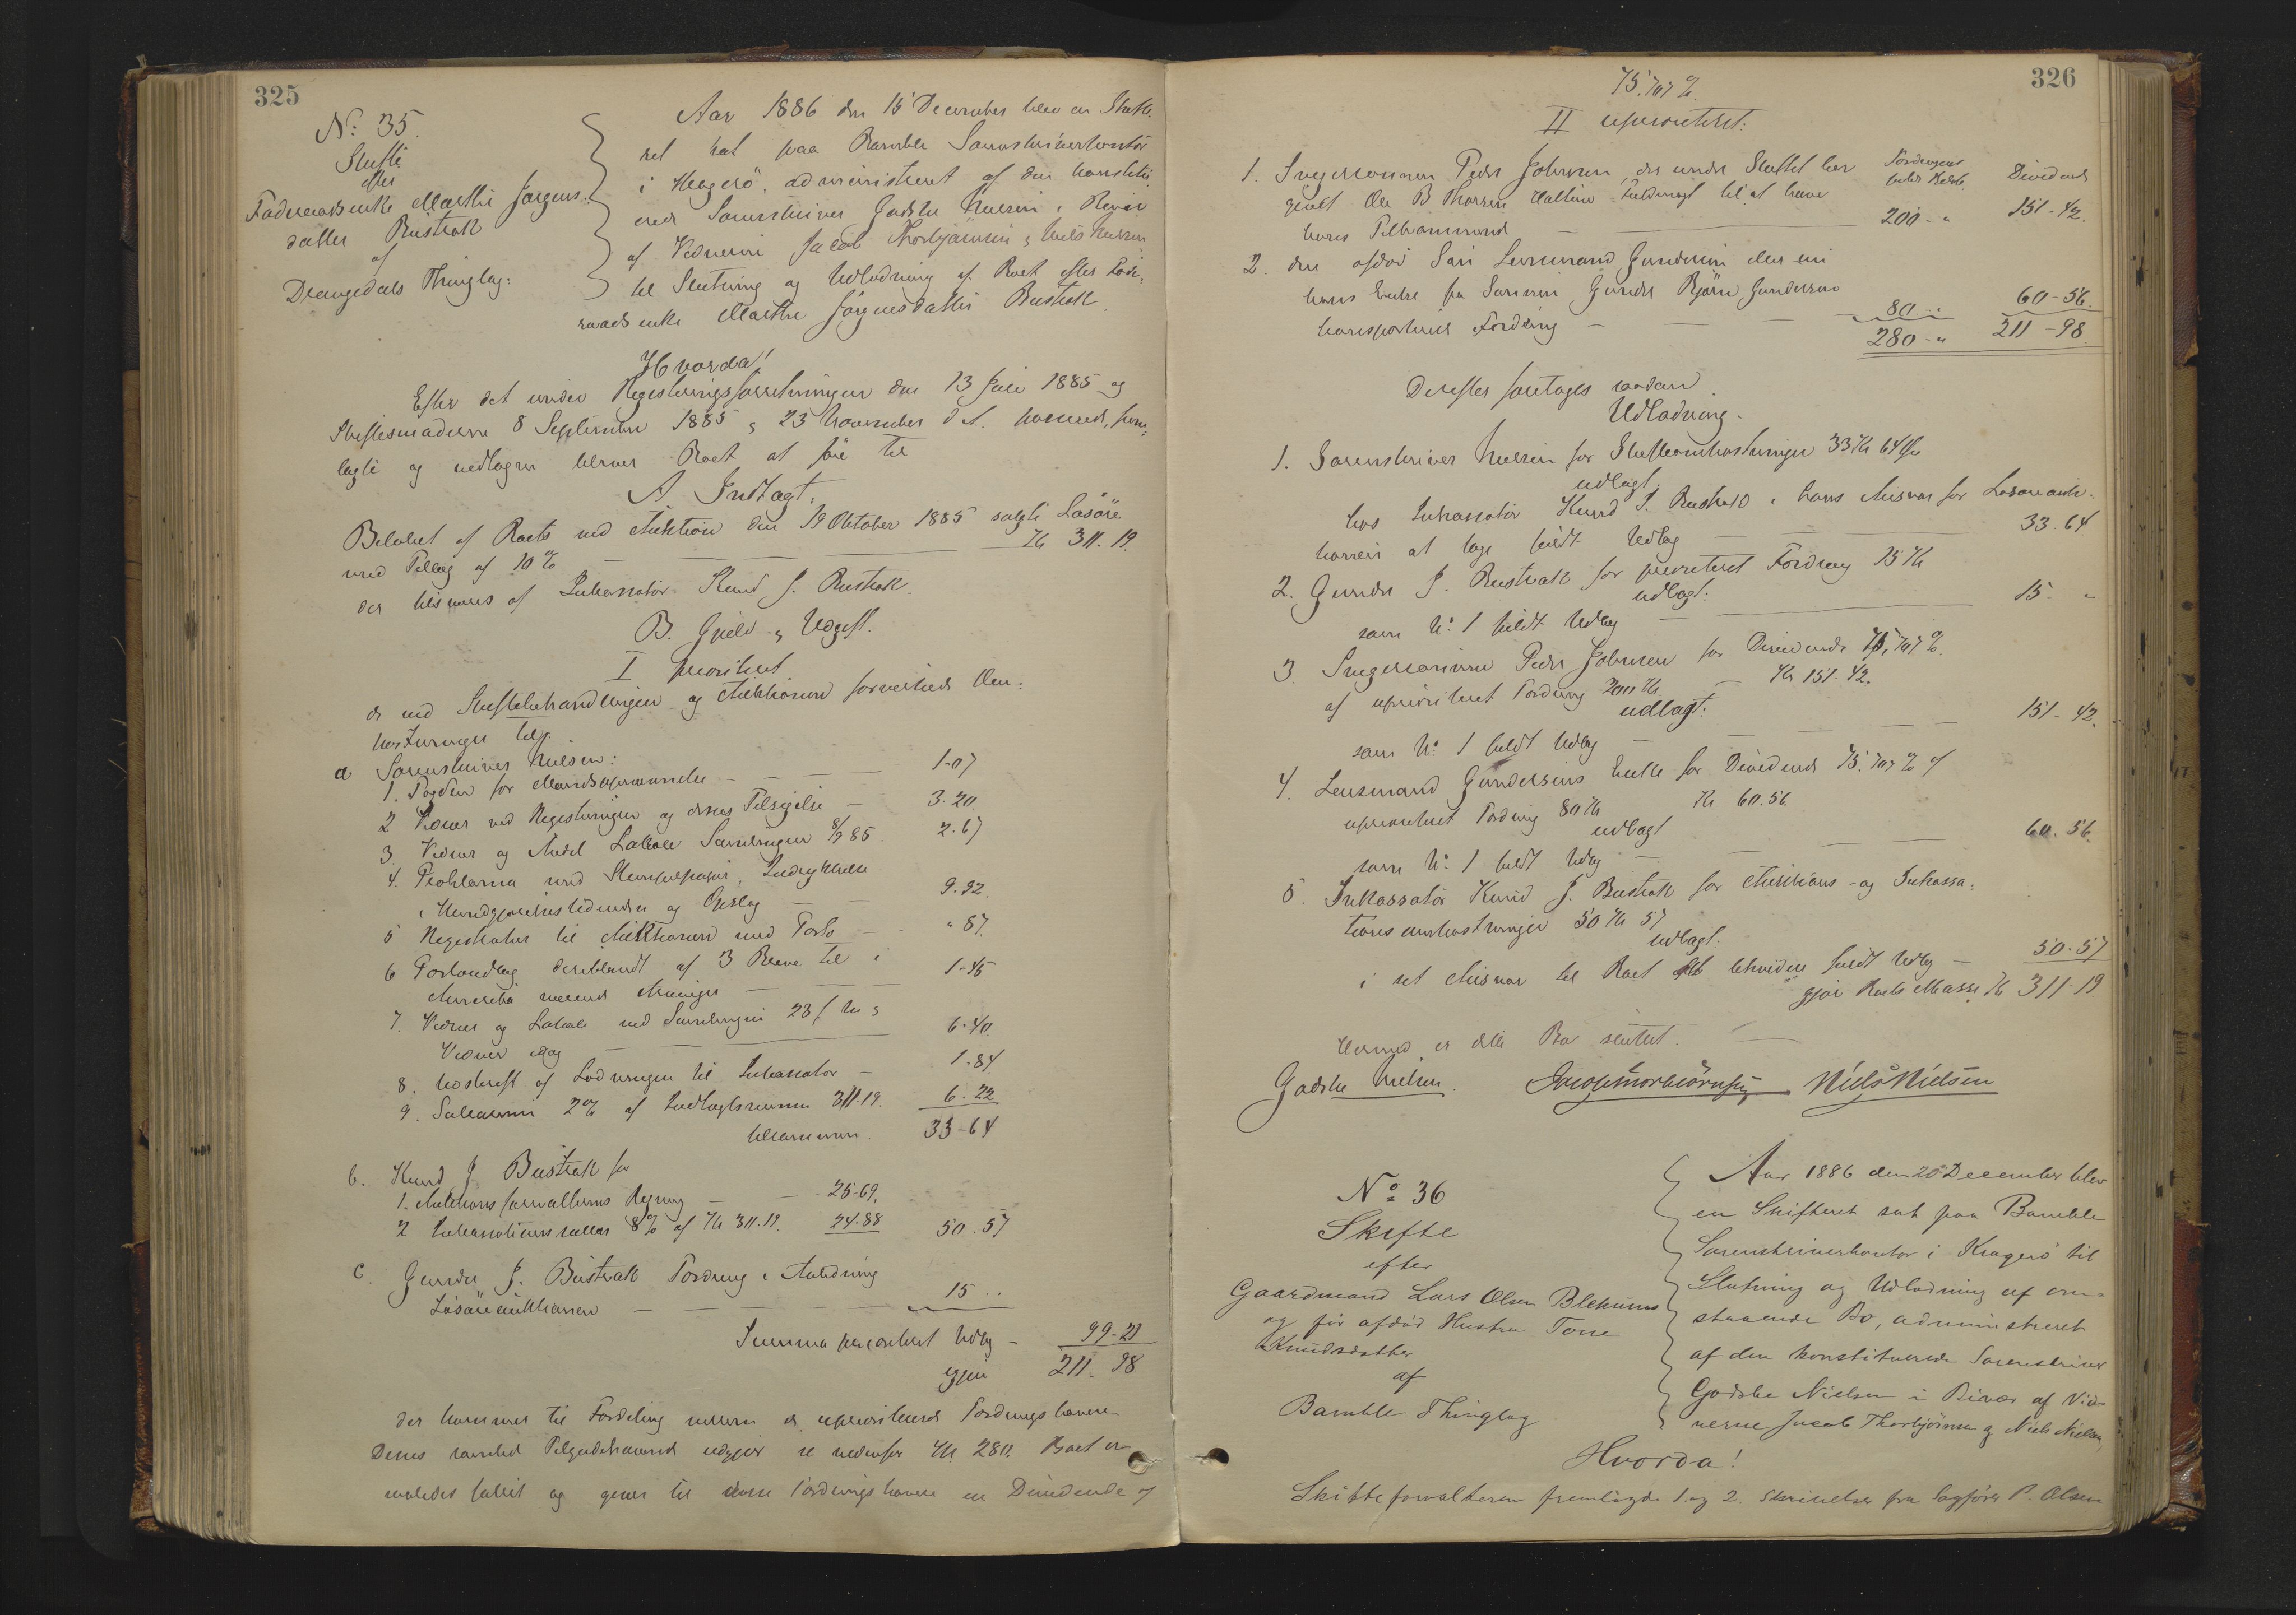 325
No: 35.
Skifte
efter
Føderaadsenke Marthe Jørgens-
datter Bustrak
af
Drangedals Thinglag:
Aar 1886 den 15 December blev en Skifte-
ret sat paa Bamble Sorenskriverkontor
i Kragerø, administreret af den konstitu-
erede Sorenskriver Godske Nielsen i Bivær
af Vidnerne Jacob Thorbjørnsen & Niels Nielsen
til Slutning og Udlodning af Boet efter Føde-
raadsenke Marthe Jørgensdatter Bustrak.
Hvorda!
Efter det under Registreringsforretningen den 13 Juli 1885 og
Skiftesamlerne 8 September 1885 & 23 November d. A. passerede, frem-
lagte og vedtagne bliver Boet at føre til
A Indtægt.
Beløbet af Boets ved Auktion den 19 Oktober 1885 solgte Løsøre
med Tillæg af 10 % — Kr 311.19.
der tilsvares af Inkassator Knud J. Bustrak.
B. Gjeld & Udgift.
I prioriteret
er ved Skiftebehandlingen og Auktionen forvoldte Om-
kostninger
a Sorenskriver Nielsen:
1. Fogden for Mandsopnævnelse — 1-07
2 Vidner ved Registreringen og deres Tilsigelse — 3.20.
3. Vidner og Andel Lokale Samlingen 8/9 85. 2.67
4. Proklama med Stempelpapir, Indrykkelse
i Kundgjørelsestidende og Opslag — 9.92.
5 Registratur til Auktionen med Porto — " 87.
6 Portoudlæg deriblandt af 3 Breve til i
Amerika værende Arvinger — 1-45
7. Vidner og Lokale ved Samlingen 23/ &
Vidner idag — 6.40
8. Udskrift af Lodningen til Inkassator — 1.84
9. Sallarium 2% af Indtægtssummen 311.19. 6.22
tilsammen. 33-64
b. Knud J. Bustrak for
1. Auktionsforvalterens Regning — 25.69.
2 Inkassationssallær 8% af Kr 311.19. 24.88 50.57
c. Gunder J. Bustrak Fordring i Anledning
Løsøreauktionen — 15 ..
Summa prioriteret Udlæg — 99-21
igjen 211-98
der kommer til Fordeling mellem de uprioriterede Fordringshavere
Deres samlede Tilgodehavende udgjør se nedenfor Kr 280. Boet er
saaledes fallit og giver til disse Fordringshavere en Dividende af
326
75,707 %.
II uprioriteret:
Fordringens Beløb. Dividende
1. Svigersønnen Peder Johnsen, der under Skiftet har
givet Ole B Thorsen Fuldmagt til at hæve
hans Tilkommende — 200-" 151-42
2. den afdøde Søn Lensmand Gundersen eller nu
hans Enke fra Sønnen Gunder Bjørn Gundersen
transporterede Fordring — 80-" 60-56.
280-" 211-98
Derefter foretages saadan
Udlodning.
1. Sorenskriver Nielsen for Skifteomkostninger 33 Kr 64 Øre
udlagt:
hos Inkassator Knud J. Bustrak i hans Ansvar for Løsøreauk-
tionen at tage fuldt Udlæg — 33.64
2. Gunder J. Bustrak for prioriteret Fordring 15 Kr
udlagt:
som No 1 fuldt Udlæg — 15- "
3. Svigersønnen Peder Johnsen for Dividende 75,707 %.
af uprioriteret Fordring 200 Kr — Kr 151.42.
udlagt:
som No 1 fuldt Udlæg — 151-42.
4. Lensmand Gundersens Enke for Dividende 75.707 % af
uprioriteret Fordring 80 Kr Kr 60.56
udlagt
som No 1 fuldt Udlæg — 60.56.
5. Inkassator Knud J. Bustrak for Auktions- og Inkassa-
tionsomkostninger 50 Kr 57
udlagt.
i sit Ansvar til Boet fuldt Udlæg — 50-57
gjør Boets Masse Kr 311-19
Hermed er dette Bo sluttet.
Godske Nielsen. Jacob Thorbiørnsen Niels Nielsen
No 36
Skifte
efter
Gaardmand Lars Olsen Blekums
og før afdød Hustru Tone
Knudsdatter
af
Bamble Thinglag
Aar 1886 den 20 December blev
en Skifteret sat paa Bamble
Sorenskriverkontor i Kragerø til
Slutning og Udlodning af om-
staaende Bo, administreret
af den konstituerede Sorenskriver
Godske Nielsen i Bivær af Vid-
nerne Jacob Thorbjørnsen og Niels Nielsen,
Hvorda!
Skifteforvalteren fremlagde 1 og 2. Skrivelser fra lagfører P. Olsen